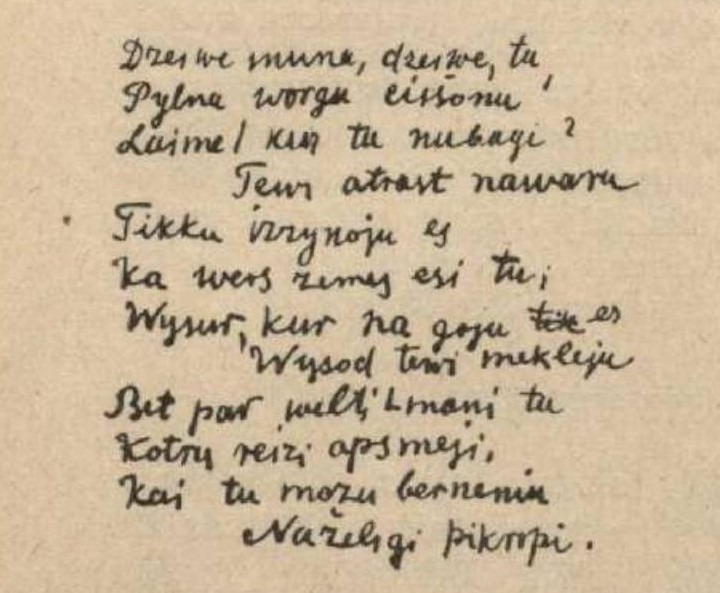 Dzeiwe muna, dzeiwe, tu,
Pylna worgu cissonu
Laime! kur tu nubagi?
Tewi atrast nawaru
Tikku izzynoju es
Ka wers zemes esi tu;
Wysur, kur na goju es
Wysod tewi mekleju
Bet par welti mani tu
Kotru reizi apsmeji,
Kai tu mozu berneniu
Naželigi pikropi.